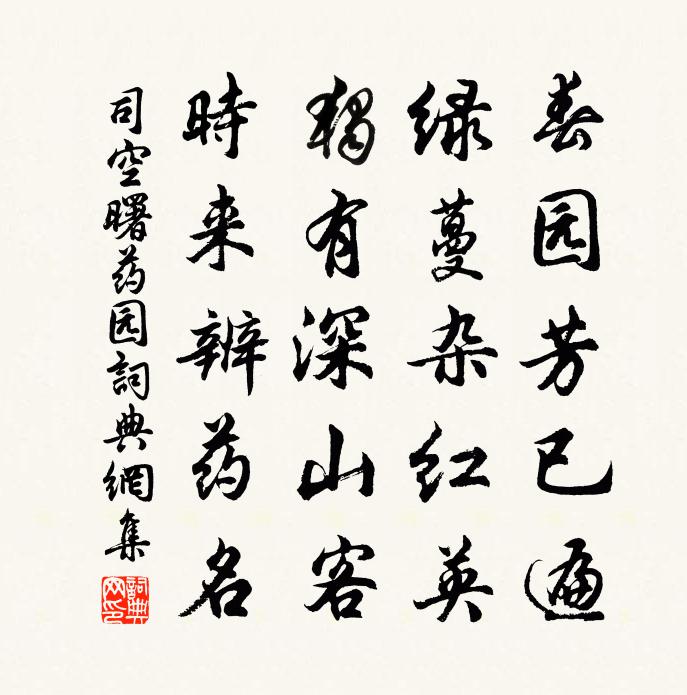 春园芳已遍
绿蔓杂红英
独有深山客
時来辨药名
司空曙药园詞典網集
詞典
网印